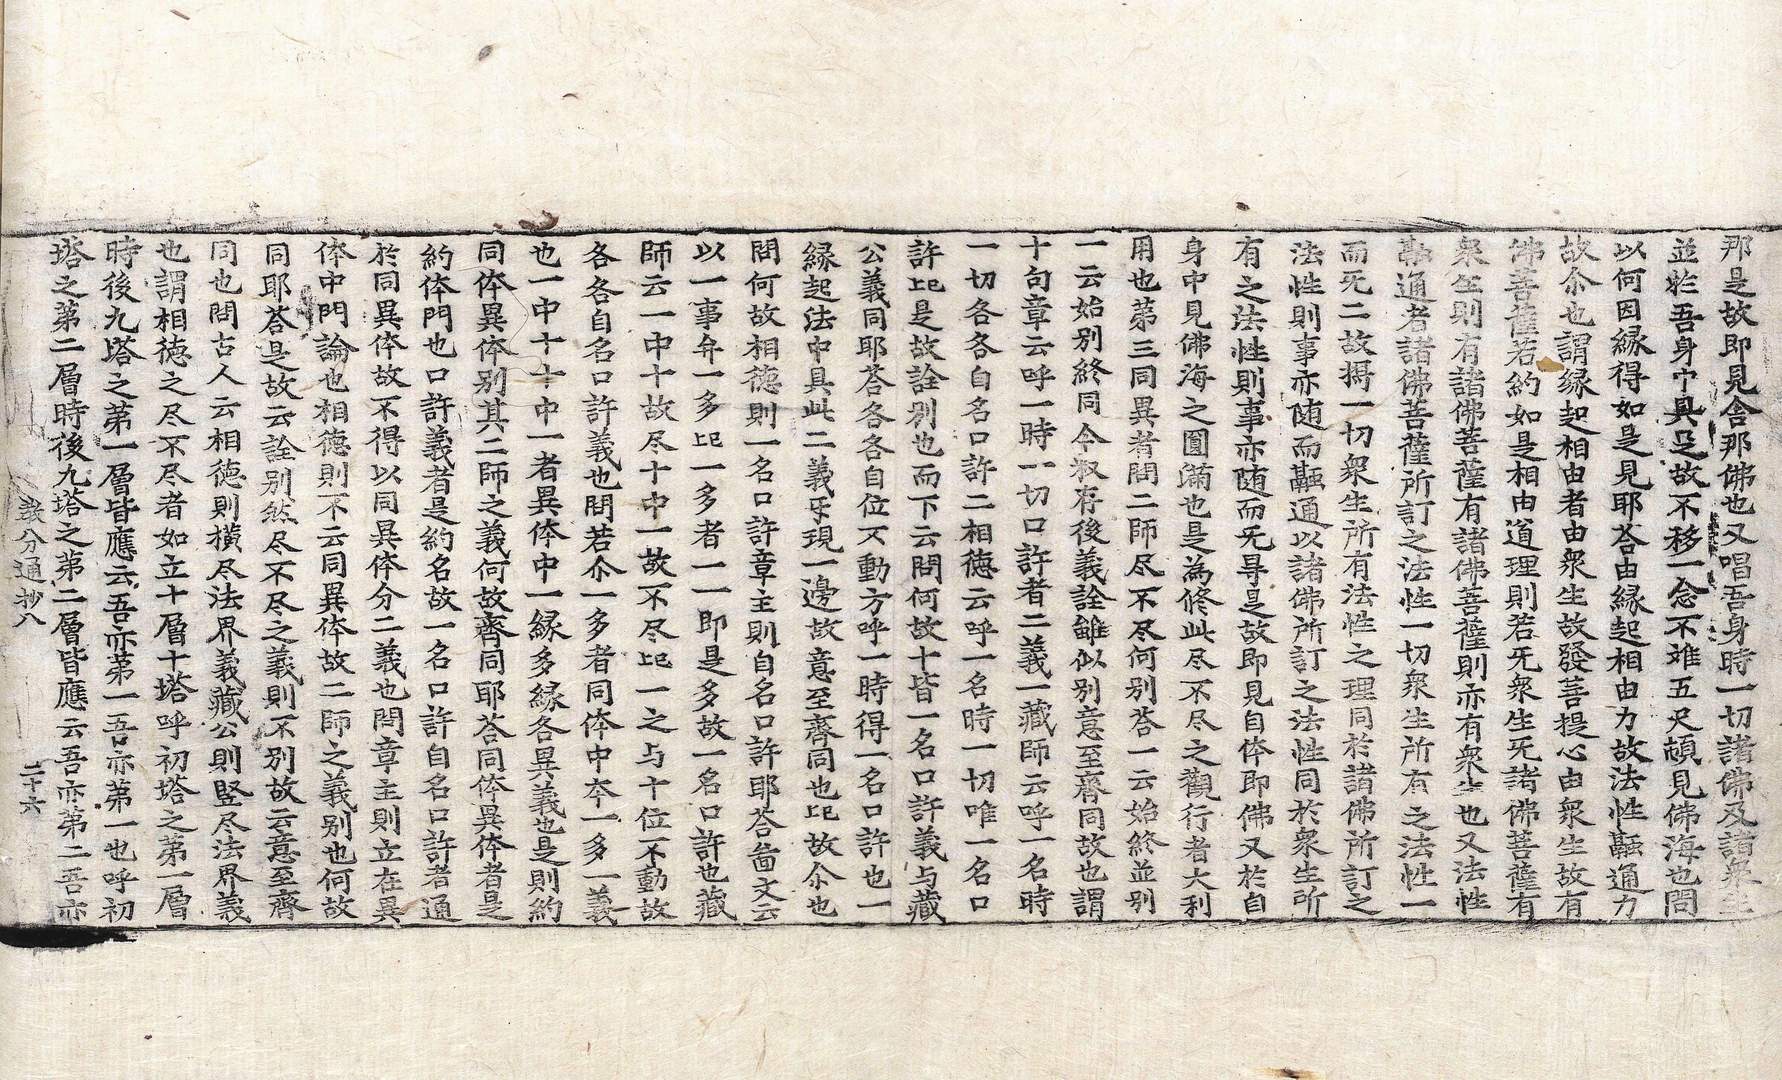 那是故即見舍那佛也又唱吾身時一切諸佛及諸衆生
並於吾身中具足故不移一念不難五尺頓見佛海也問
以何因縁得如是見耶荅由縁起相由力故法性融通力
故尒也謂縁起相由者由衆生故發菩提心由衆生故有
佛菩薩若約如是相由道理則若旡衆生旡諸佛菩薩有
衆生則有諸佛菩薩有諸佛菩薩則亦有衆生也又法性
融通者諸佛菩薩所訂之法性一切衆生所有之法性一
而旡二故擧一切衆生所有法性之理同於諸佛所訂之
法性則事亦随而融通以諸佛所訂之法性同於衆生所
有之法性則事亦随而旡㝵是故即見自体即佛又於自
身中見佛海之圓滿也是為修此尽不尽之觀行者大利
用也第三同異者問二師尽不尽何別荅一云始終並別
一云始別終同今叔存後義詮雖似別意至齊同故也謂
十句章云呼一時一切口許者二義一藏師云呼一名時
一切各各自名口許二相德云呼一名時一切唯一名口
許㔾是故詮別也而下云問何故十皆一名口許義与藏
公義同耶荅各各自位不動方呼一時得一名口許也一
縁起法中具此二義㸦現一邊故意至齊同也㔾故尒也
問何故相德則一名口許章主則自名口許耶荅啚文云
以一事弁一多㔾一多者一一即是多故一名口許也藏
師云一中十故尽十中一故不尽㔾一之与十位不動故
各各自名口許義也問若尒一多者同体中夲一多一義
也一中十十中一者異体中一縁多縁各異義也是則約
同体異体別其二師之義何故齊同耶荅同体異体者是
約体門也口許義者是約名故一名口許自名口許者通
於同異体故不得以同異体分二義也問章主則立在異
体中門論也相德則不云同異体故二師之義別也何故
同耶荅是故云詮別然尽不尽之義則不別故云意至齊
同也問古人云相德則橫尽法界義藏公則竪尽法界義
也謂相德之尽不尽者如立十層十塔呼初塔之第一層
時後九塔之第一層皆應云吾亦第一吾亦第一也呼初
塔之第二層時後九塔之第二層皆應云吾亦第二吾亦
教分通抄八 二十六